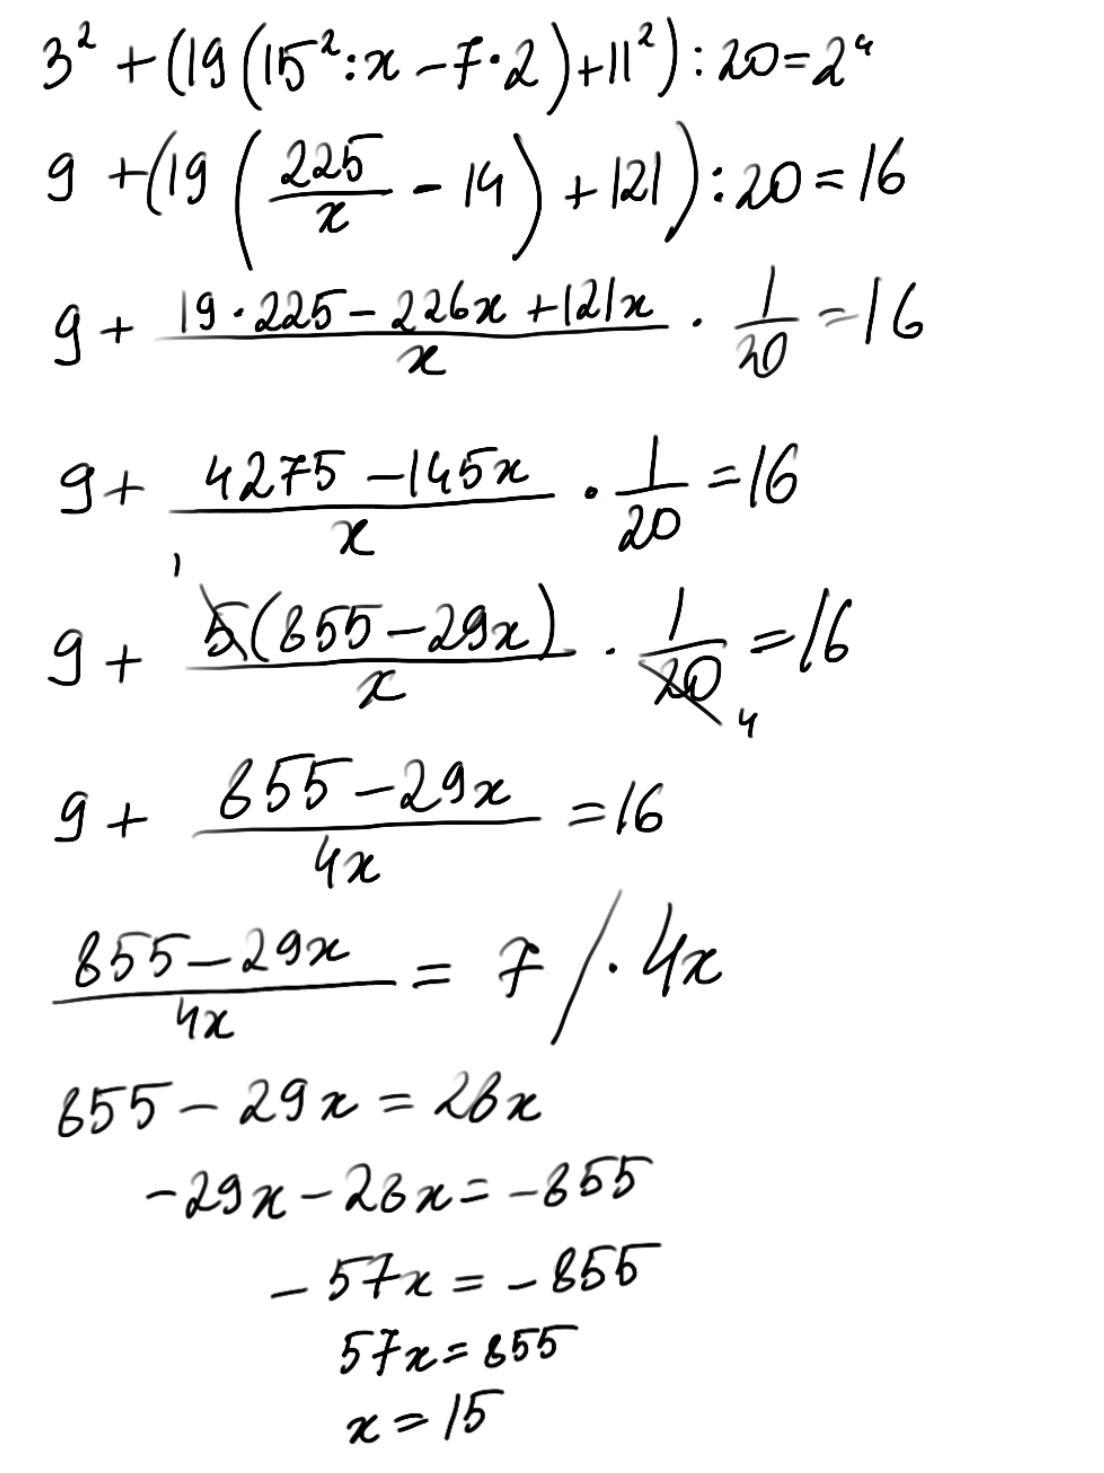 3² + (19(15²:x − 7·2) + 11²) : 20 = 2⁴
9 + (19(225/x − 14) + 121) : 20 = 16
9 + (19·225 − 226x + 121x)/x · 1/20 = 16
9 + (4275 − 145x)/x · 1/20 = 16
1
9 + 5(855 − 29x)/x · 1/20 = 16
4
9 + (855 − 29x)/4x = 16
(855 − 29x)/4x = 7 / · 4x
855 − 29x = 28x
−29x − 28x = −855
−57x = −855
57x = 855
x = 15